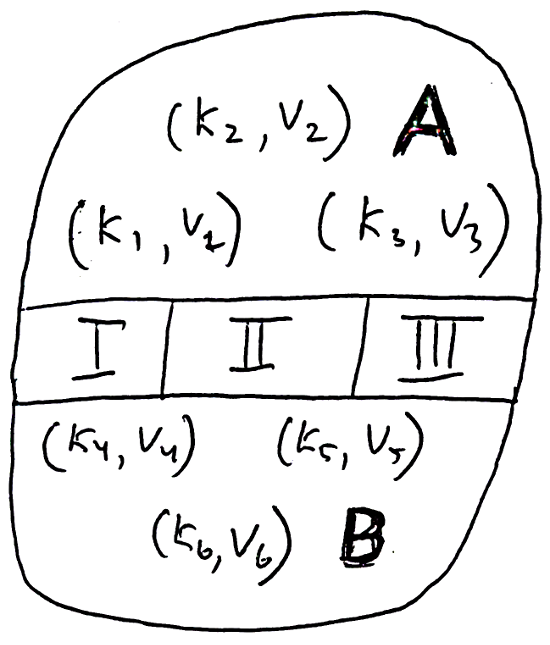 (K₂, V₂) A
(K₁, V₁) (K₃, V₃)
I II III
(K₄, V₄) (K₅, V₅)
(K₆, V₆) B